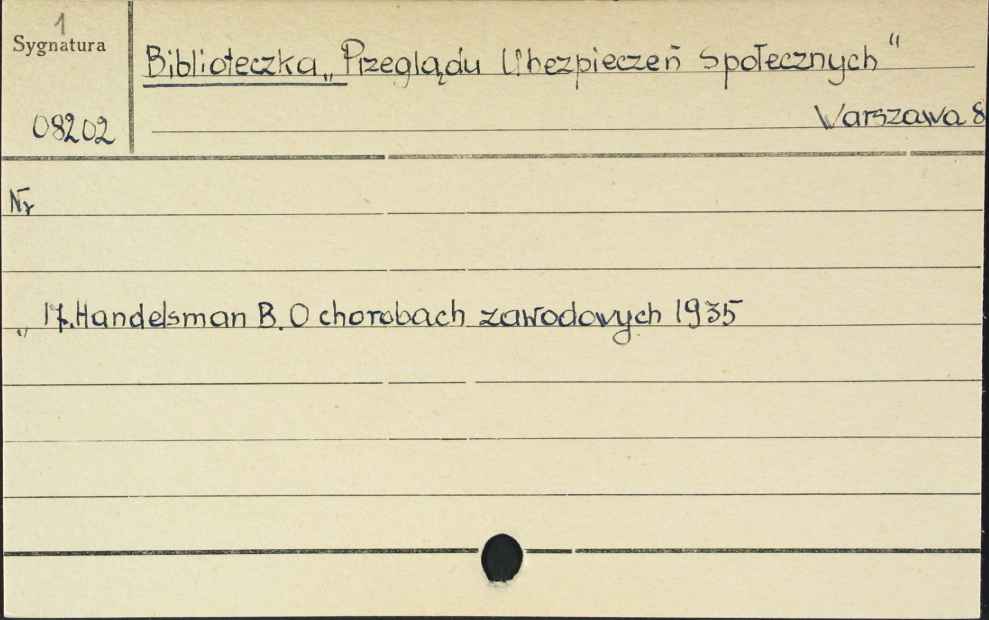 1
Sygnatura
Biblioteczka „Przeglądu Ubezpieczeń Społecznych“
08202
Warszawa 8
Nr
„ 17. Handelsman B. O chorobach zawodowych 1935